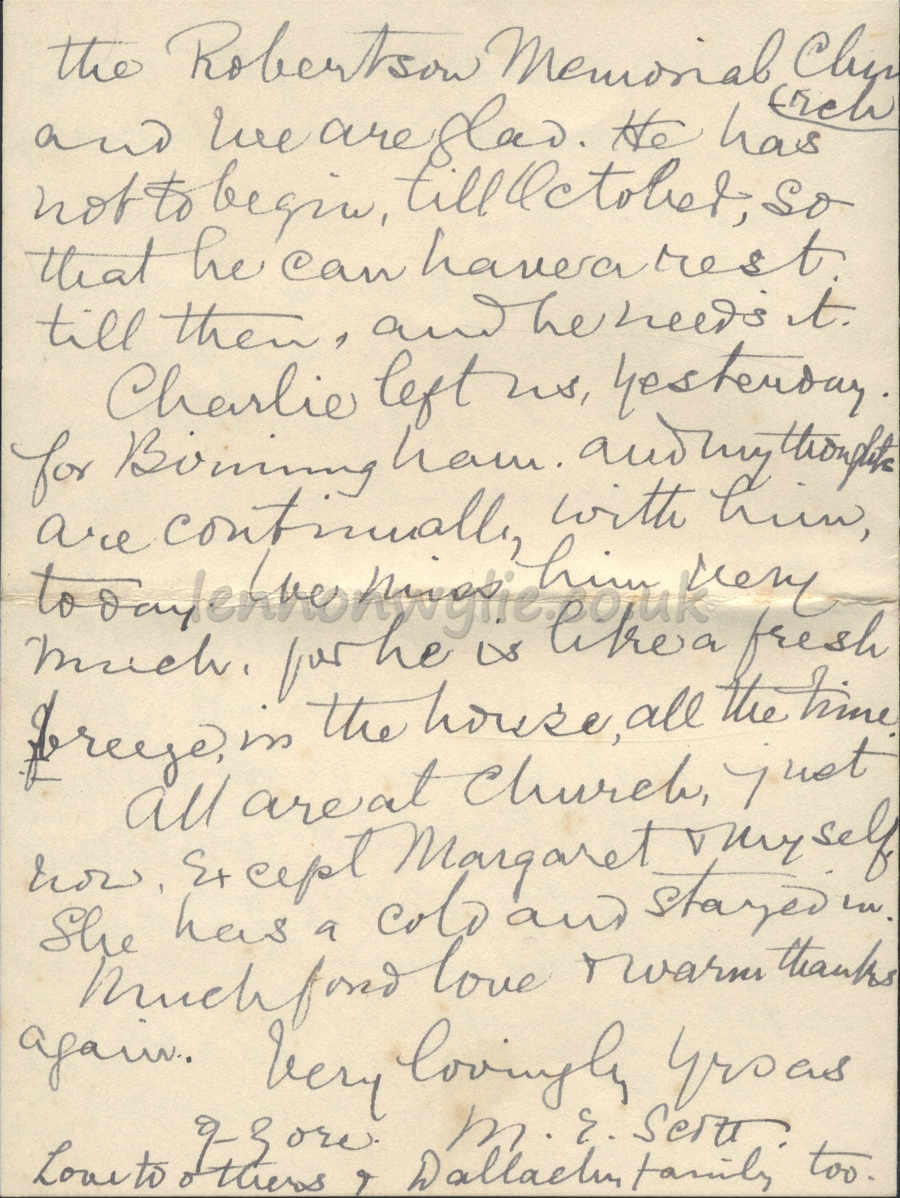 the Robertson Memorial Chu
rch
and we are glad. He has
not to begin, till October, so
that he can have a rest.
till then, and he needs it.
Charlie left us, yesterday.
for Birmingham. and my thoughts
are continually, with him,
today. We miss him very
lennonwylie.co.uk
much, for he is like a fresh
breeze, in the house, all the time.
All are at Church, just
now, Except Margaret & myself,
She has a cold and stayed in.
Much fond love & warm thanks
again.
Very lovingly Yrs as
of yore. M. E. Scott.
Love to others & family too.